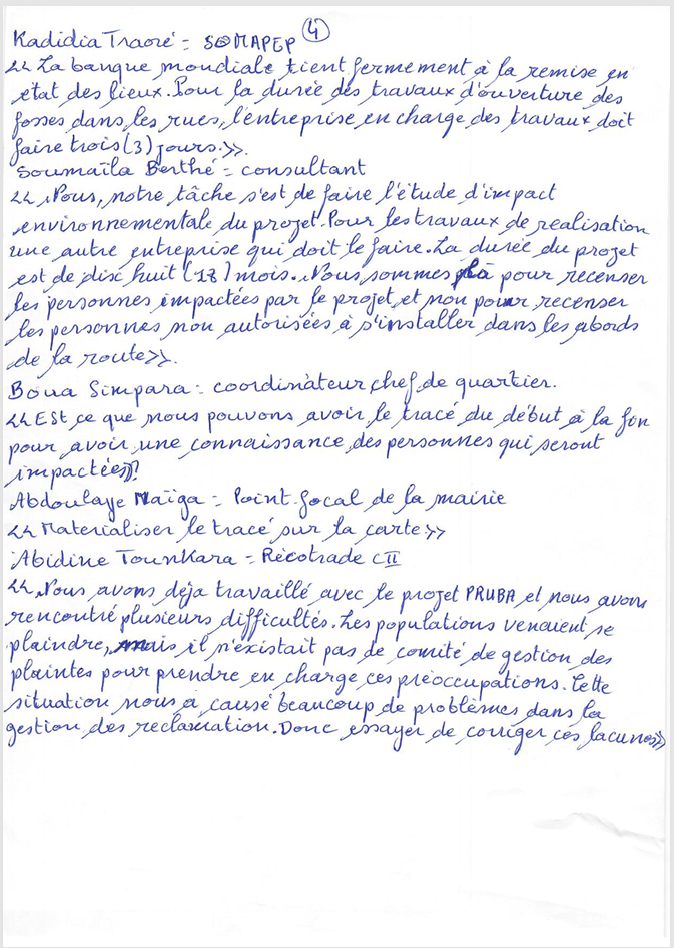 ④
Kadidia Traoré = SOMAPEP
<< La banque mondiale tient fermement à la remise en
état des lieux. Pour la durée des travaux d'ouverture des
fosses dans les rues, l'entreprise en charge des travaux doit
faire trois (3) jours.>>.
Soumaïla Berthé = consultant
<< Nous, notre tâche s'est de faire l'étude d'impact
environnementale du projet. Pour les travaux de realisation
une autre entreprise qui doit le faire. La durée du projet
est de dix huit (18) mois. Nous sommes là pour recenser
les personnes impactées par le projet, et non pour recenser
les personnes non autorisées à s'installer dans les abords
de la route>>.
Boua Simpara = coordinateur, chef de quartier.
<< Est ce que nous pouvons avoir le tracé du début à la fin
pour avoir une connaissance des personnes qui seront
impactées>>?
Abdoulaye Maïga = Point focal de la mairie
<< Materialiser le tracé sur la carte>>
Abidine Tounkara = Récotrade CII
<< Nous avons déja travaillé avec le projet PRUBA et nous avons
rencontré plusieurs difficultés. Les populations venaient se
plaindre, mais il n'existait pas de comité de gestion des
plaintes pour prendre en charge ces préoccupations. Cette
situation nous a causé beaucoup de problèmes dans la
gestion des reclamation. Donc essayer de corriger ces lacunes>>